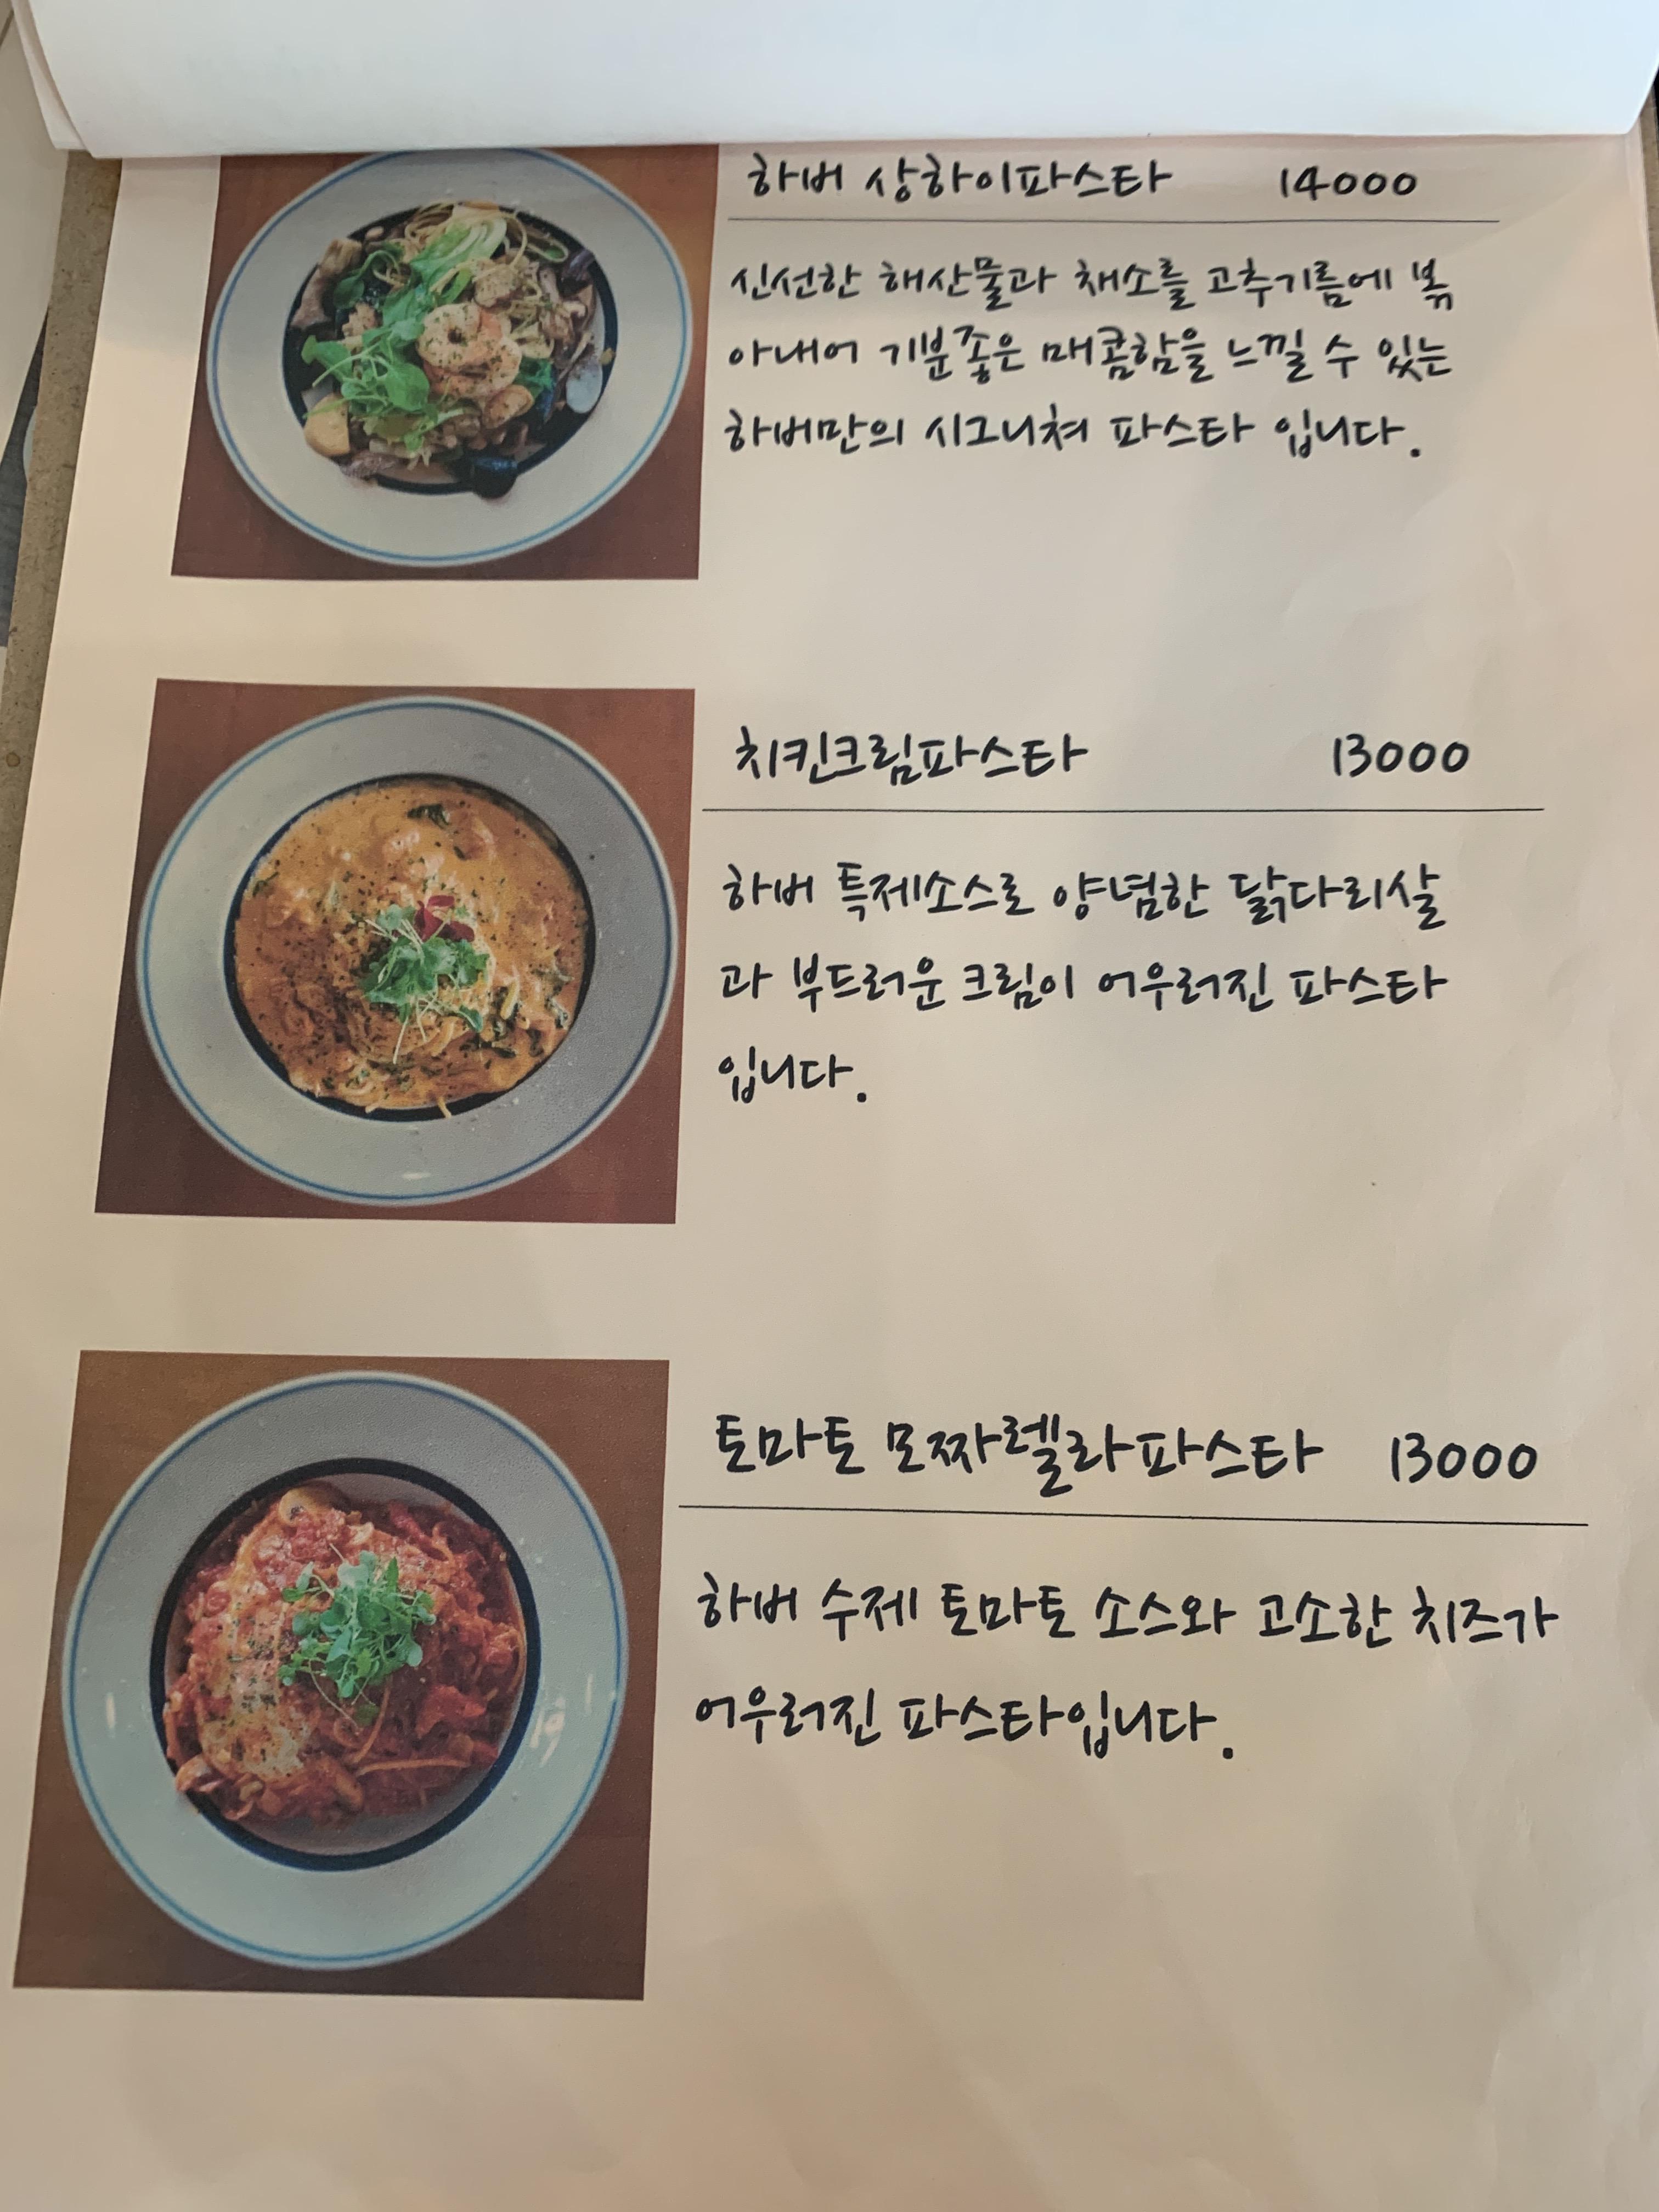 하버 상하이파스타 14000
신선한 해산물과 채소를 고추기름에 볶
아내어 기분좋은 매콤함을 느낄 수 있는
하버만의 시그니쳐 파스타 입니다.
치킨크림파스타 13000
하버 특제소스로 양념한 닭다리살
과 부드러운 크림이 어우러진 파스타
입니다.
토마토 모짜렐라파스타 13000
하버 수제 토마토 소스와 고소한 치즈가
어우러진 파스타입니다.